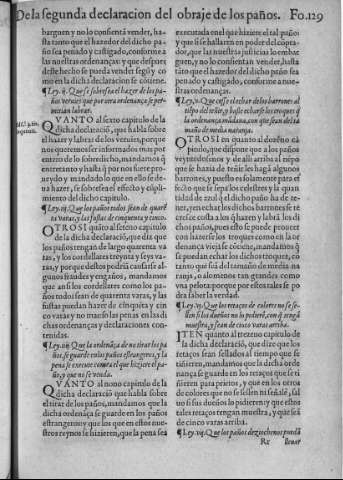 De la segunda declaracion del obraje de los paños. Fo.129
barguen y no lo consientā vender, has
ta tanto que el hazedor del dicho pa-
ño sea penado y castigado, conforme a
las nuestras ordenanças: y que despues
deste hecho se pueda vender segū y co
mo en la dicha declaracion se cōtiene.
¶Ley. ij. Que se sobresea el hazer de los pa-
ños verbies que por otra ordenança se per-
mitian labrar.
QVANTO al sexto capitulo de la
dicha declaraciō, que habla sobre
el hazer y labrar de los veruies, porque
nos queremos ser informados mas por
entero de lo sobredicho, mandamos q̄
entretanto y hasta q̄ por nos fuere pro-
ueydo y mandado lo que en ello se de-
ua hazer, se sobresea el effecto y cūpli-
miento del dicho capitulo.
¶Ley. iij. Que los paños todos sean de quarē
ta varas, y las fustas de cinquenta y cinco.
OTROSI quāto al seteno capitulo
de la dicha declaraciō, que dize que
los paños tengan de largo quarenta va
ras, y los cordellates treynta y seys va-
ras, y porque destos podriā causarse al-
gunos fraudes y engaños, mandamos
que ansi los cordellates como los pa-
ños todos sean de quarenta varas, y las
fustas puedan hazer de cinquēta y cin
co varas y no mas so las penas en las di
chas ordenanças y declaraciones con-
tenidas.
¶Ley. iiij. Que la ordenāça de no tirar los pa
ños, se guarde en los paños estrangeros, y la
pena se execute como en el que hiziere el pa-
ño, y que no se venda.
QVANTO al nono capitulo de la
dicha declaracion que habla sobre
el tirar de los paños, mandamos que la
dicha ordenāça se guarde en los paños
estrangeros y que los que en estos nue-
stros reynos se hizieren, que la pena sea
executada en el que hiziere el tal paño:
y que si se hallaren en poder del compra-
dor, que las nuestras justicias lo embar
guen, y no lo consientan vender, hasta
tanto que el hazedor del dicho paño sea
penado y castigado, conforme a nue-
stras ordenanças.
¶Ley. v. Que cesse el echar de los barrones al
tiempo del teñir, y baste echarse los troques q̄
la ordenança mādaua, con que sean del ta
maño de media naranja.
OTROSI en quanto al dozeno ca
pitulo, que dispone que a los paños
veyntedosenos y de alli arriba al tiēpo
que se hauia de teñir les hagā algunos
barrones, y puesto es solamente para ef
fecto que se sepā los celestres y la quan
tidad de azul q̄ el dicho paño ha de te-
ner, y en echar los dichos barrones se re
cresce costa a los q̄ hazen y labrā los di
chos paños, pues esto se puede proueer
con hazer se los troques como en la or
denança vieja se cōtiene, mandamos q̄
se puedan echar los dichos troques, cō
tanto que seā del tamaño de media na
ranja, o alomenos tan grandes como
vna pelota: porque por estos tales se po
dra saber la verdad.
¶Ley. vj. Que los retaços de colores no se se-
llen si los dueños no lo pidierē, con q̄ tengā
muestra, y sean de cinco varas arriba.
ITEN quanto al trezeno capitulo de
la dicha declaraciō, que dize que los
retaços sean sellados al tiempo que se
tiñieren, mandamos que la dicha orde
nança se guarde en los retaços que se ti
ñieren para prietos, y que en los otros
de colores que no se sellen ni señale, sal
uo si sus dueños lo pidieren: y que estos
tales retaços tengan muestra, y que seā
de cinco varas arriba.
¶Ley. vij. Que los paños dezi ochenos puedā
Rx lleuar